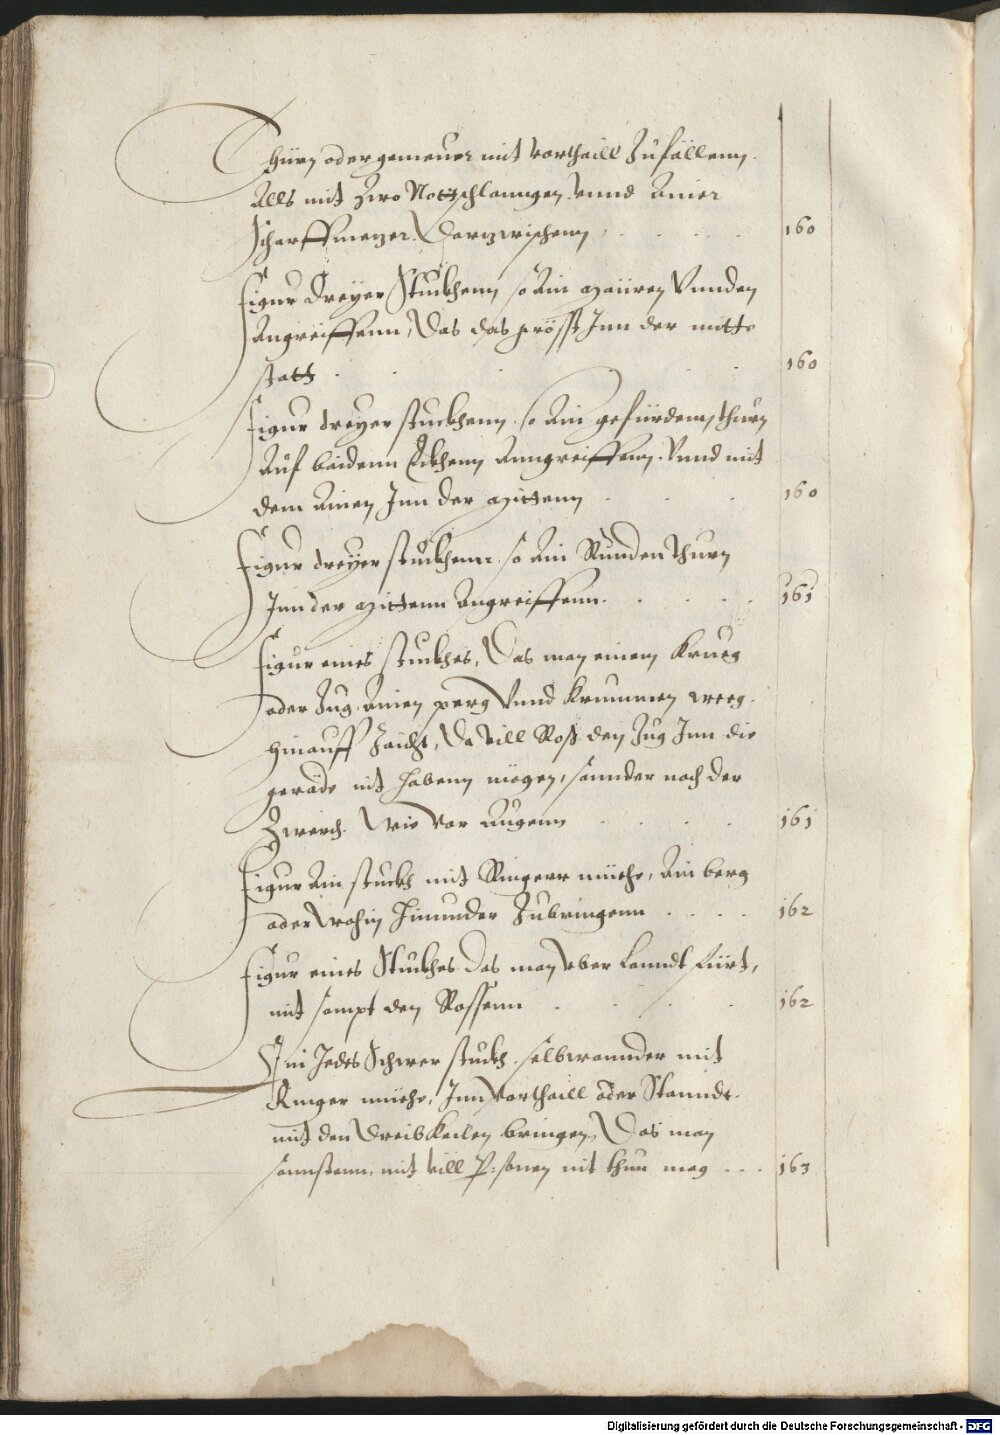 Thürn oder gemeuer mit vorthaill Zufällenn.
Alls mit Zwo Nottschlanngen. vnnd Ainer
Scharffmetzer. Darzwischenn 160
Figur dreyer Stuckhenn so Ain Mauren Vnnden
Angreiffenn, Das das gröst Inn der mitte
statt 160
Figur dreyer stuckhenn. so Ain gefürdenn thurn
Auf baidenn Eckhenn Anngreiffenn. Vnnd mit
dem Ainen Inn der Mittenn 160
Figur dreyer stuckhenn. so Ain Runden thurn
Inn der Mittenn Angreiffenn. 161
Figur eines stuckhes, Das man einem Krueg
oder Zug Ainen perg Vnnd Krummen weeg.
hinauff Zaicht, Da vill Roß den Zug Inn die
gerade nit habenn mögen, sonnder nach der
Zwerch. Wie vor Augenn 161
Figur Ain stuckh mit Ringerr müehe, Ain berg
oder wohin hinunder Zubringenn 162
Figur eines Stuckhes das man vber Lanndt fürt,
mit sampt den Rossenn 162
Ein Jedes Schwer stuckh. selbwannder mit
Ringer müehe, Inn Vorthaill oder Stanndt.
mit den Dreib Keilen bringen, Das man
sonnstenn, mit vill P:sonen nit thun mag 163
Digitalisierung gefördert durch die Deutsche Forschungsgemeinschaft - DFG